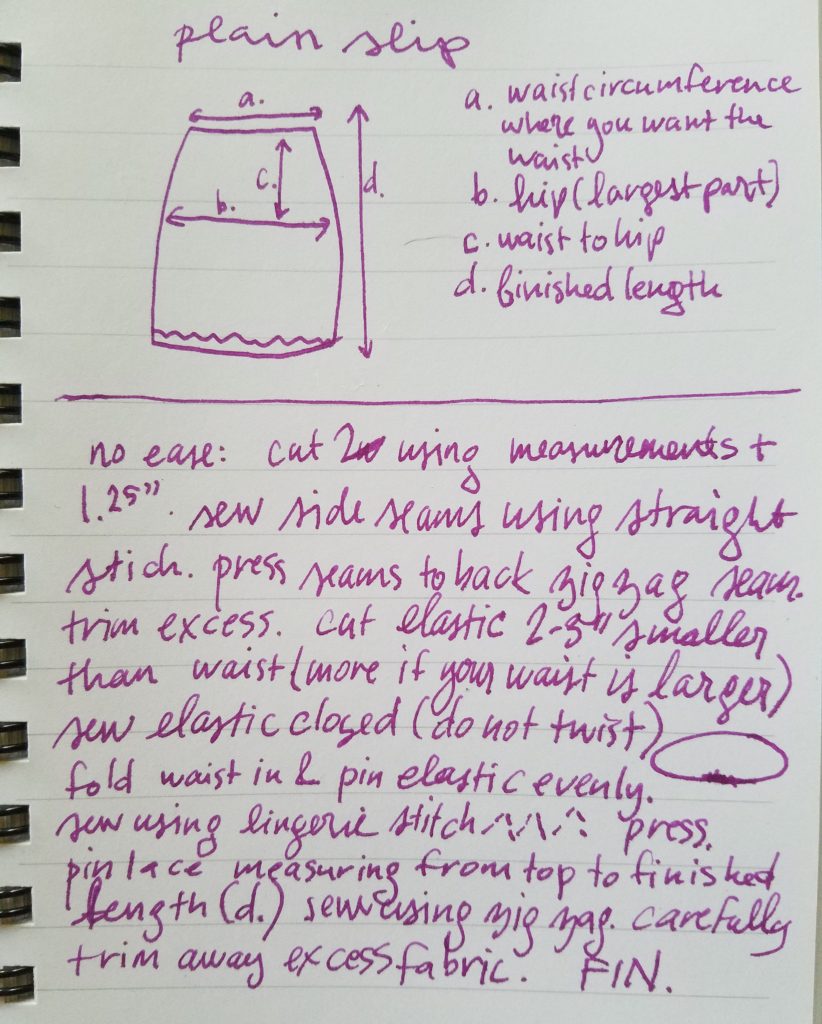 plain slip
a.
c.
b.
d.
a. waist circumference
where you want the
waist
b. hip (largest part)
c. waist to hip
d. finished length
no ease: cut 2 using measurements +
1.25". sew side seams using straight
stich. press seams to back zig zag seam.
trim excess. cut elastic 2-3" smaller
than waist (more if your waist is larger)
sew elastic closed (do not twist)
fold waist in & pin elastic evenly.
sew using lingerie stitch press.
pin lace measuring from top to finished
length (d.) sew using zig zag. carefully
trim away excess fabric. FIN.